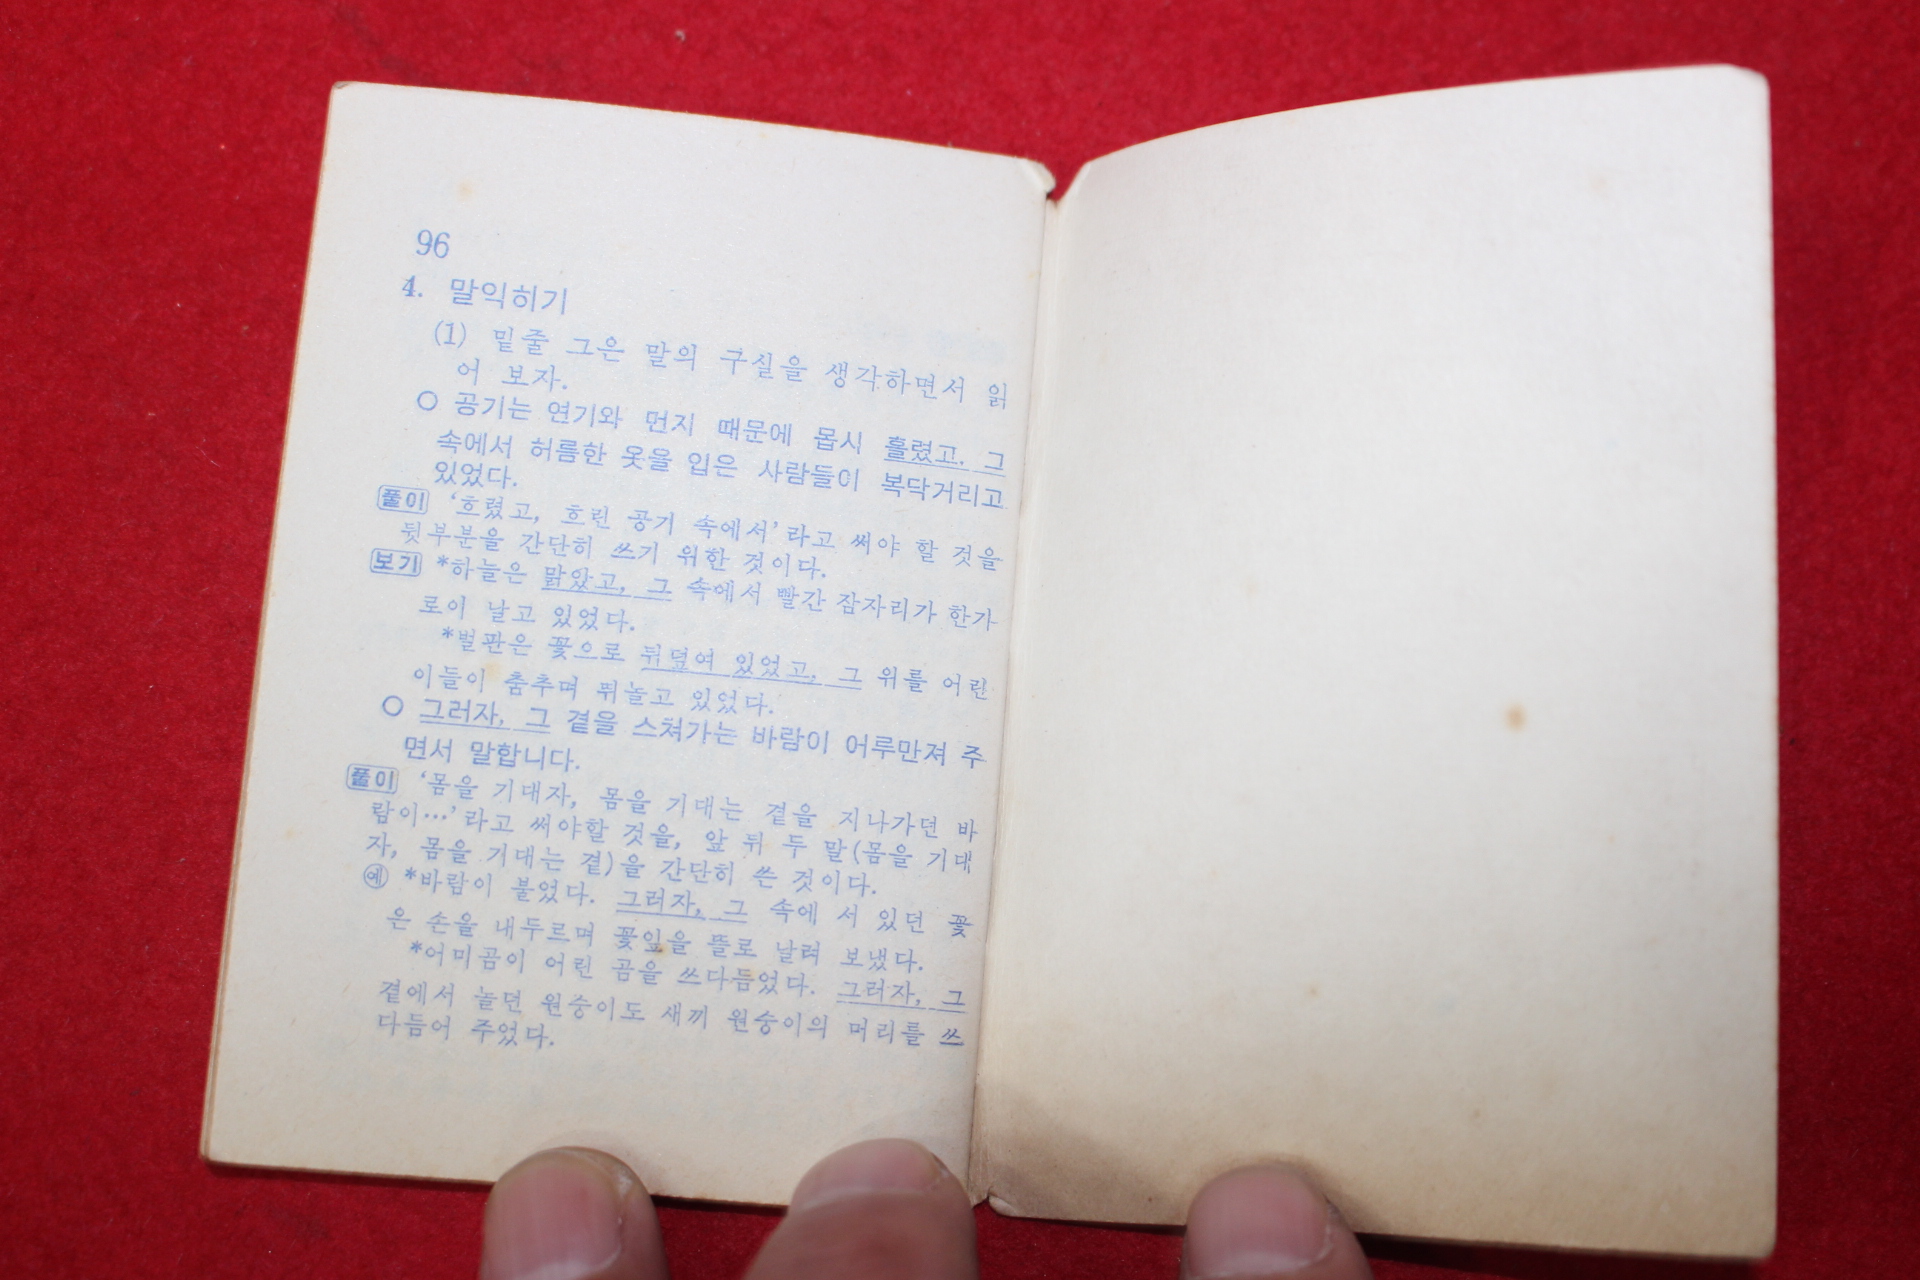 96
4. 말익히기
(1) 밑줄 그은 말의 구실을 생각하면서 읽
어 보자.
○ 공기는 연기와 먼지 때문에 몹시 흘렸고, 그
속에서 허름한 옷을 입은 사람들이 복닥거리고
있었다.
풀이 ‘흐렸고, 흐린 공기 속에서’라고 써야 할 것을
뒷부분을 간단히 쓰기 위한 것이다.
보기 *하늘은 맑았고, 그 속에서 빨간 잠자리가 한가
로이 날고 있었다.
*벌판은 꽃으로 뒤덮여 있었고, 그 위를 어린
이들이 춤추며 뛰놀고 있었다.
○ 그러자, 그 곁을 스쳐가는 바람이 어루만져 주
면서 말합니다.
풀이 ‘몸을 기대자, 몸을 기대는 곁을 지나가던 바
람이…’라고 써야할 것을, 앞 뒤 두 말(몸을 기대
자, 몸을 기대는 곁)을 간단히 쓴 것이다.
예 *바람이 불었다. 그러자, 그 속에 서 있던 꽃
은 손을 내두르며 꽃잎을 뜰로 날려 보냈다.
*어미곰이 어린 곰을 쓰다듬었다. 그러자, 그
곁에서 놀던 원숭이도 새끼 원숭이의 머리를 쓰
다듬어 주었다.